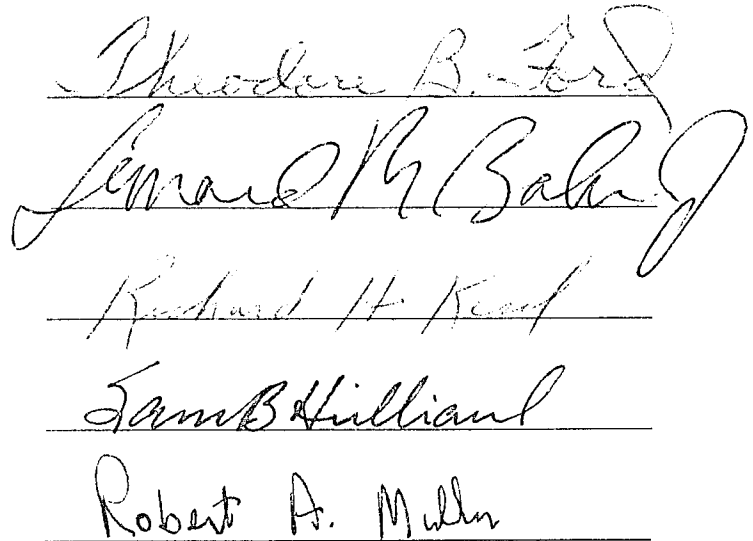 Theodore B. Ford
Leonard M Bahr Jr
Richard H. Kesel
Sam B Hilliard
Robert A. Muller